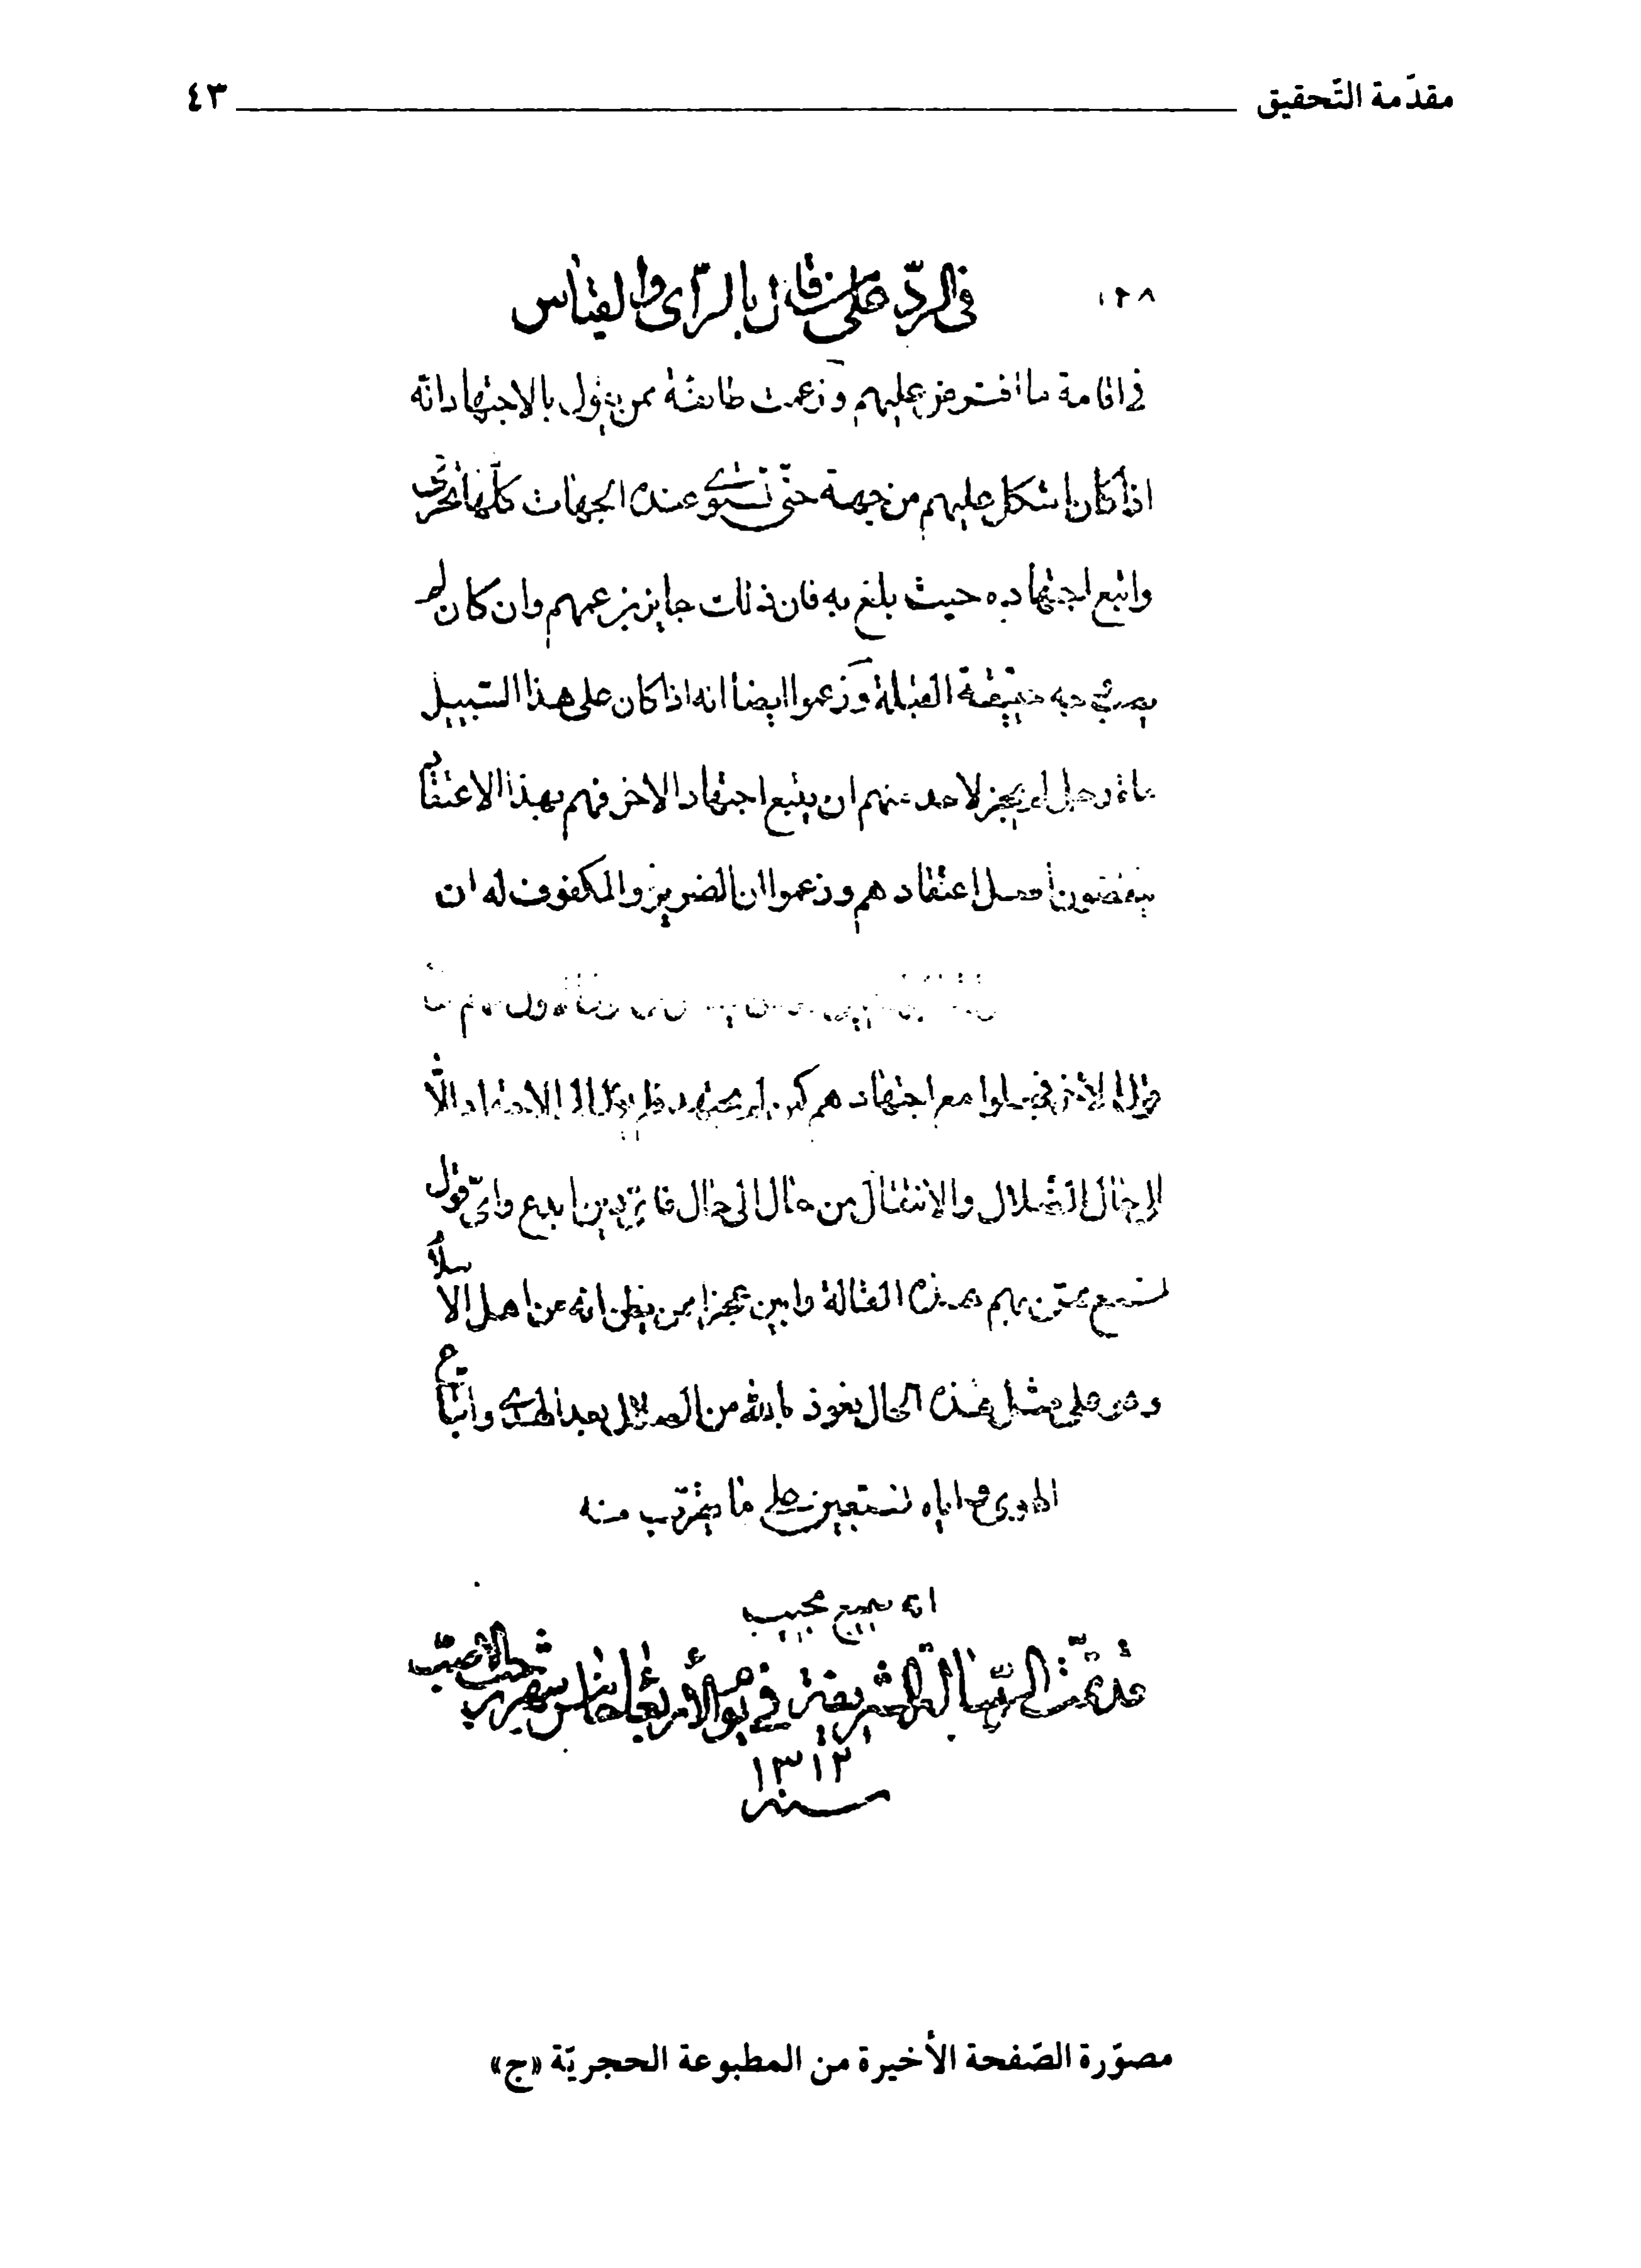 مقدّمة التّحقيق ٤٣
١٢٨ في الردّ على من قال بالرّأى والقياس
في اقامة ما افترض عليهم وزعمت طائفة ممن يقول بالاجتهاد انّه
اذا كان اشكل عليهم من جهة حتّى تستوى عنده الجهات كلّها تحرّى
واتبع اجتهاده حيث بلغ به فان ذلك جايز بزعمهم وان كان لم
يصب وجه حقيقة القبلة وزعموا ايضا انه اذا كان على هذا السّبيل
مائة رجل لم يجز لاحد منهم ان يتبع اجتهاد الاخر فهم بهذا الاعتقاد
ينقضون اصل اعتقادهم وزعموا ان الضرير والمكفوف له ان
مع اجتهادهم كمن لم يجتهد فلم الاجتهاد الّا
الى حال الضّلال والانتقال من حال الى حال فاىّ دين ابدع واىّ قول
اشنع من هذه المقالة وابين عجزا ممن يظن انه من اهل الاسلام
وهو على مثل هذه الحال نعوذ بالله من الضلالة بعد الهدى واتباع
الهوى واياه نستعين على ما يقرّب منه
انه سميع مجيب
قد تمّت الرّسالة الشريفة في يوم الأربعا خامس شهر رجب الاصبّ
١٣١٢
سنه
مصوّرة الصّفحة الأخيرة من المطبوعة الحجريّة «ج»